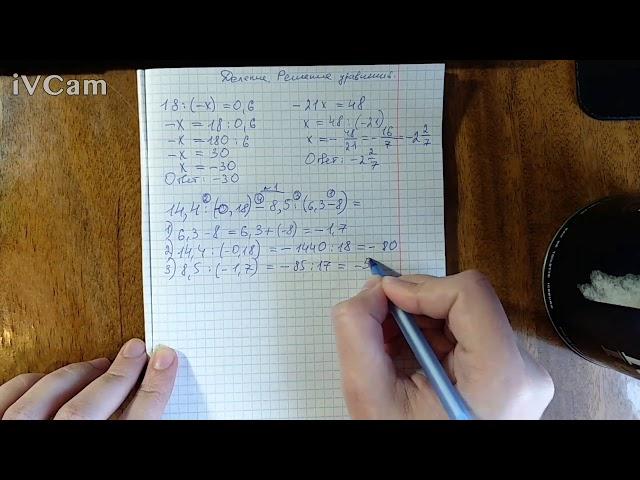 iVCam
Деление. Решение уравнений.
18 : (-х) = 0,6
-х = 18 : 0,6
-х = 180 : 6
-х = 30
х = -30
Ответ: -30
-21х = 48
х = 48 : (-21)
х = - 48/21 = - 16/7 = -2 2/7
Ответ: -2 2/7
№1
14,4 : (-0,18) - 8,5 : (6,3 - 8) =
1) 6,3 - 8 = 6,3 + (-8) = -1,7
2) 14,4 : (-0,18) = -1440 : 18 = -80
3) 8,5 : (-1,7) = -85 : 17 = -5